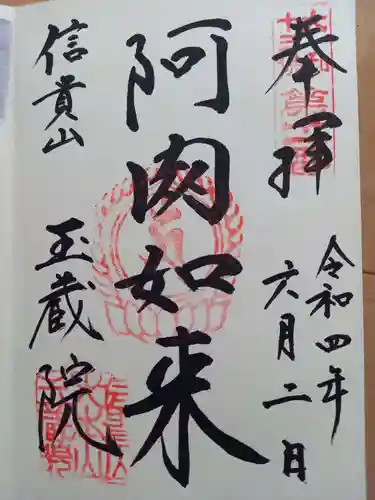 奉拝
令和四年
六月二日
阿閦如来
信貴山
玉蔵院